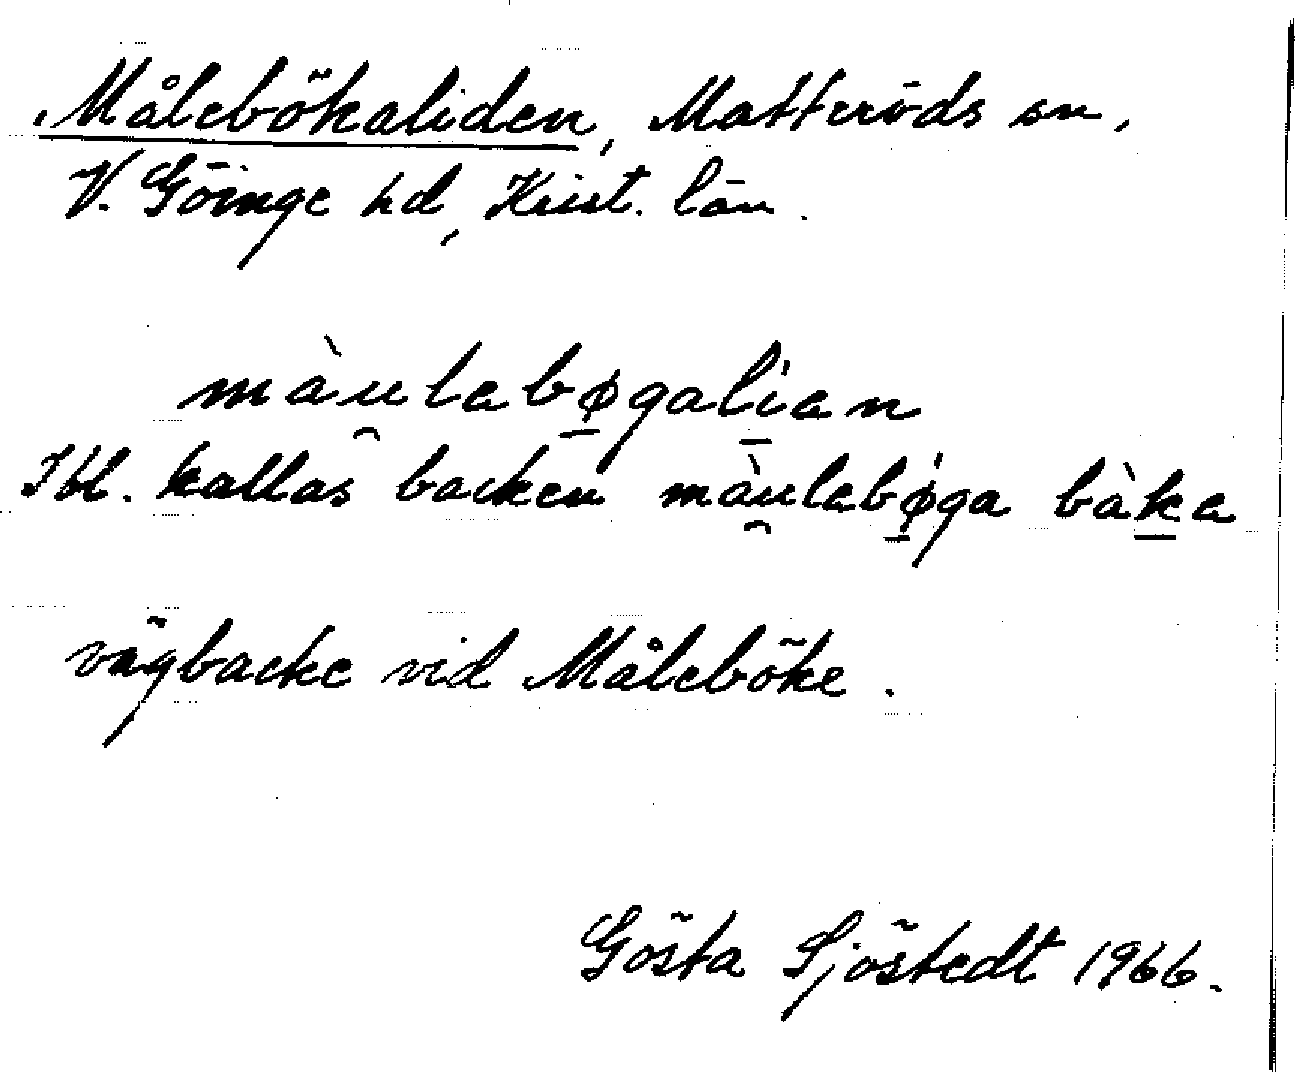 Målebökaliden, Matteröds sn,
V. Göinge hd, Krist. län.
màu̯labø̱gali̱an
Ibl. kallas backen màu̯labø̱ga bàḵa
vägbacke vid Måleböke.
Gösta Sjöstedt 1966.